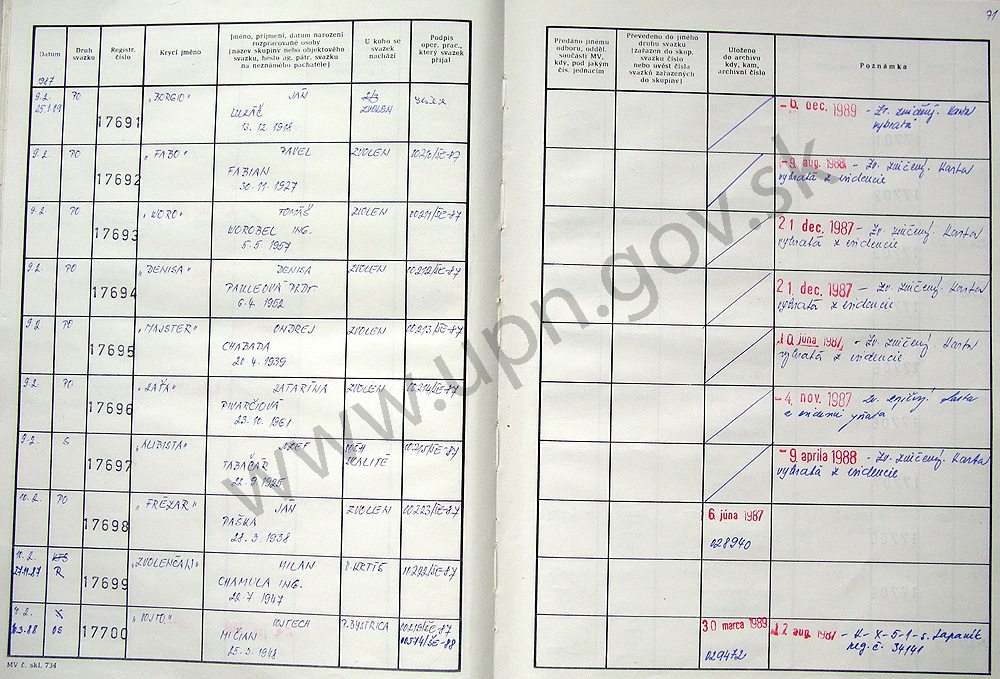 71
Datum
Druh svazku
Registr. číslo
Krycí jméno
Jméno, příjmení, datum narození
rozpracované osoby
(název skupiny nebo objektového
svazku, heslo ag. pátr. svazku
na neznámého pachatele)
U koho se
svazek
nachází
Podpis
oper. prac.,
který svazek
přijal
Předáno jinému
odboru, odděl.
součásti MV,
kdy, pod jakým
čís. jednacím
Převedeno do jiného
druhu svazku
(zařazen do skup.
svazku číslo
nebo uvést čísla
svazků zařazených
do skupiny)
Uloženo
do archivu
kdy, kam,
archivní číslo
Poznámka
1987
9.2. PO 17691 „BORGIO" JÁN
LUKÁČ
13. 12. 1918
ZVOLEN
dec. 1989 - Zv. zničený. Karta
vybratá
9.2. PO 17692 „FABO" PAVEL ZVOLEN
FABIAN
30. 11. 1927
- 9. aug. 1988 - Zv. zničený. Karta
vybratá z evidencie
9.2. PO 17693 „WORO" TOMÁŠ ZVOLEN
WOROBEL ING.
5. 5. 1957
21 dec. 1987 - Zv. zničený. Karta
vybratá z evidencie
9.2. PO 17694 „DENISA" DENISA ZVOLEN 00212/ŠE-87
PAULEOVÁ
6. 4. 1952
21 dec. 1987 - Zv. zničený. Karta
vybratá z evidencie
9.2. PO 17695 „MAJSTER" ONDREJ ZVOLEN 00213/ŠE-87
CHABADA
20. 4. 1939
10. júna 1987 - Zv. zničený. Karta
vybratá z evidencie
9.2. PO 17696 „KAŤA" KATARÍNA ZVOLEN 00214/ŠE-87
PIVARČIOVÁ
23. 10. 1961
- 4. nov. 1987 Zv. zničený. Karta
z evidencie
9.2. S 17697 „ALIBISTA" JOZEF 00215/ŠE-87
TABAČÁR SKALITÉ
22. 9. 1925
- 9. apríla 1988 - Zv. zničený. Karta
vybratá z evidencie
10.2. PO 17698 „FRÉZAR" JÁN ZVOLEN 00223/ŠE-87
PAŠKA
28. 3. 1938
6. júna 1987
028940
11.2. KTS 17699 „ZVOLENČAN" MILAN V. KRTÍŠ 00222/ŠE-87
27.11.87 R
CHAMULA ING.
22. 7. 1947
11.2. X 17700 „VOJTO" VOJTECH P. BYSTRICA 00219/ŠE-87
DS MIČIAN 00574/ŠE-88
25. 3. 1948
30 marca 1989
029472
12 aug. 1987 - V - X-5-1-s.
reg. č. 34141
MV č. skl. 734
www.upn.gov.sk